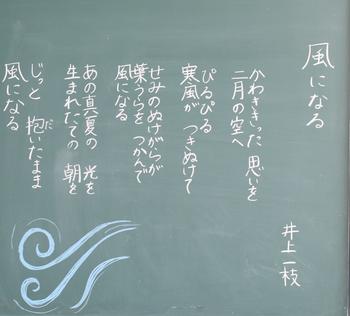 風になる
井上一枝
かわききった 思いを
二月の空へ
ぴるぴる
寒風が つきぬけて
せみのぬけがらが
葉うらを つかんで
風になる
あの真夏の 光を
生まれたての 朝を
じっと 抱いたまま
だ
風になる